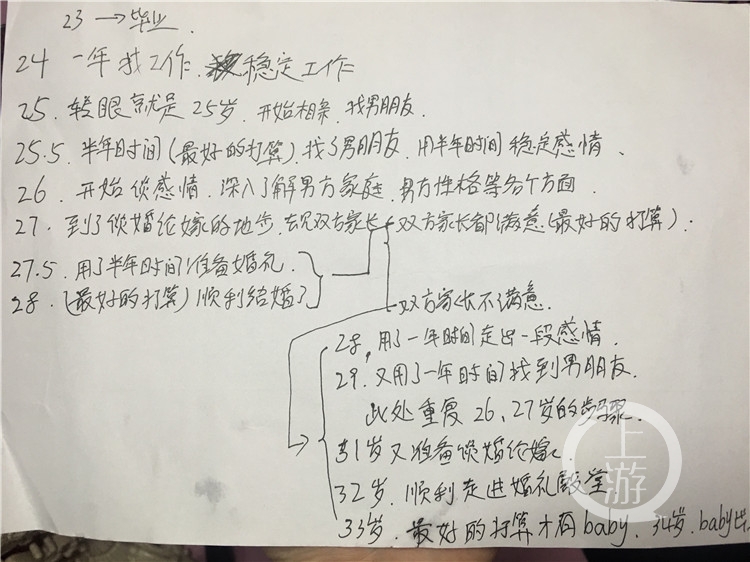 23→毕业.
24 一年找工作. 稳定工作
25. 转眼就是25岁. 开始相亲. 找男朋友.
25.5. 半年时间(最好的打算). 找了男朋友. 用半年时间稳定感情、
26、开始谈感情. 深入了解男方家庭. 男方性格等各个方面.
27. 到了谈婚论嫁的地步. 去见双方家长 双方家长都满意(最好的打算).
27.5. 用了半年时间准备婚礼.
28. (最好的打算)顺利结婚了
双方家长不满意.
28, 用了一年时间走出一段感情.
29. 又用了一年时间找到男朋友.
此处重复26、27岁的步骤.
31岁又准备谈婚论嫁.
32岁. 顺利走进婚礼殿堂
33岁. 最好的打算才有baby、34岁. baby出
上游